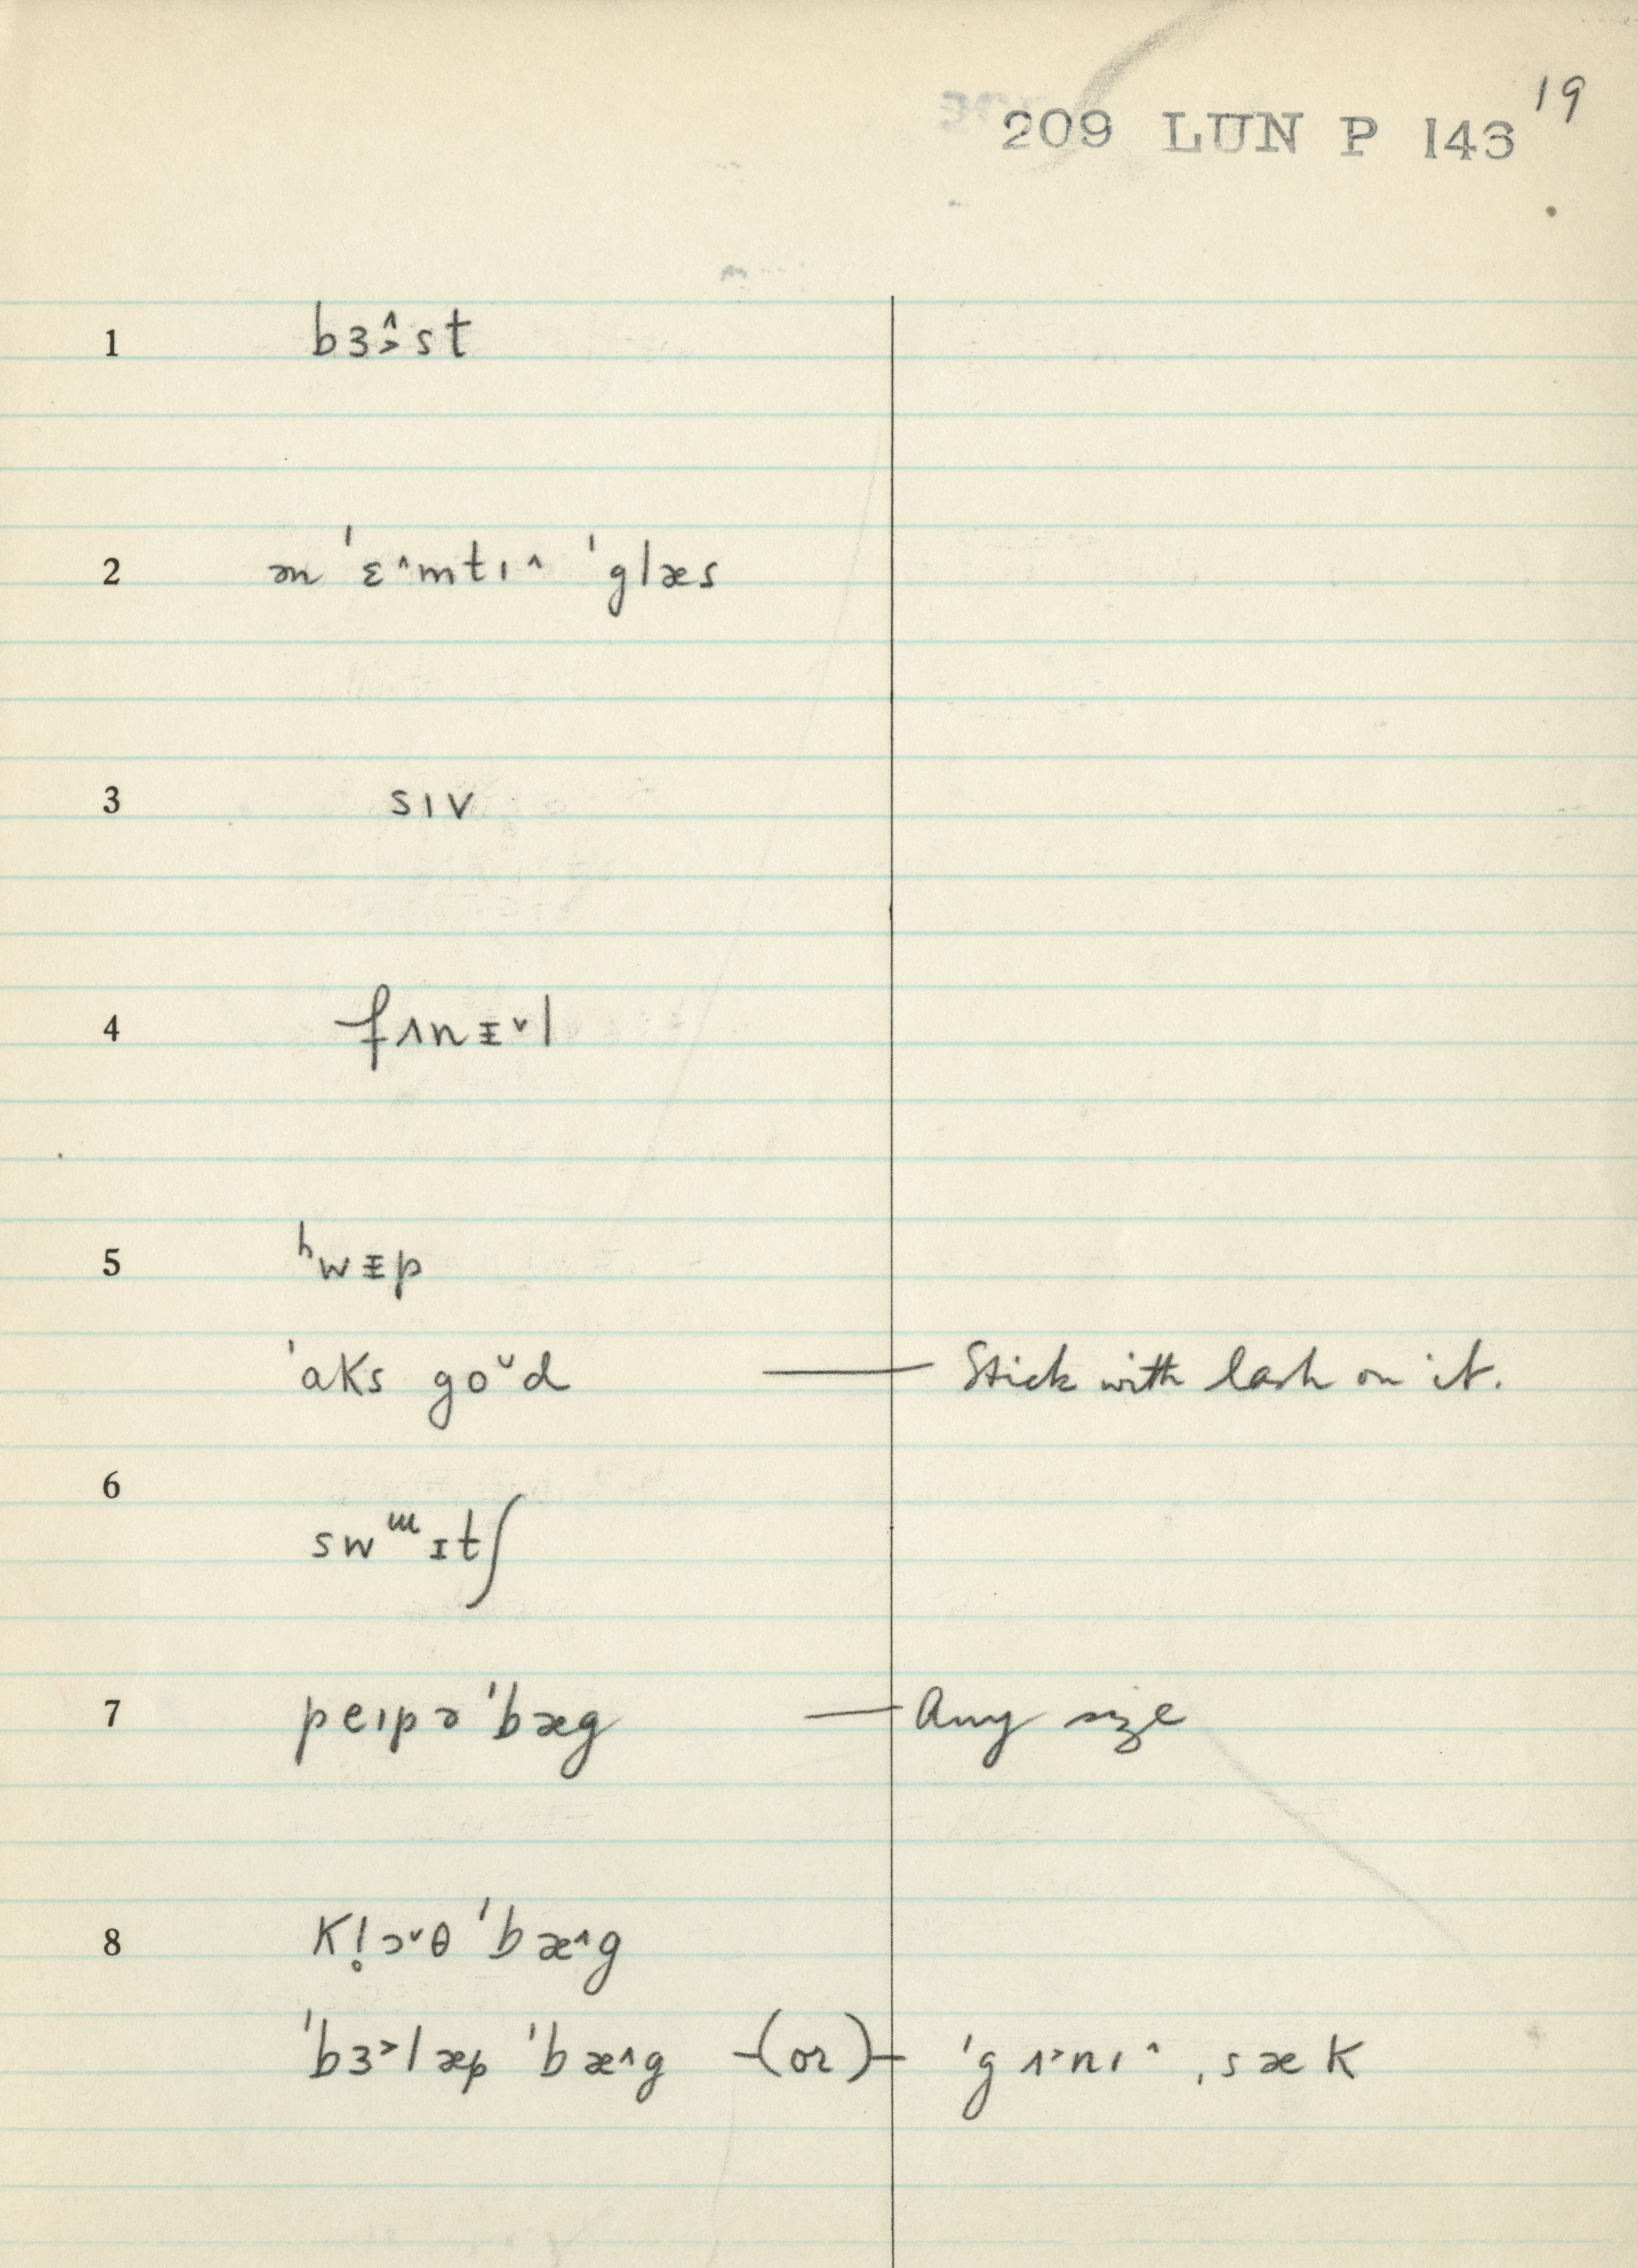 19
209 LUN P 143
1 bɜ˄˃st
2 ən ˈɛ˄mtɪ˄ ˈglæs
3 sɪv
4 fʌnᵻ˅l
5 ʰwᵻp
ˈaks go˅d — Stick with lash on it.
6 swᵚɪtʃ
7 peɪpə ˈbæg — Any size
8 kl̥ɔ˅θ ˈbæ˄g
ˈbɜ˃læp ˈbæ˄g –(or)– ˈgʌ˃nɪ˄ ˌsæk